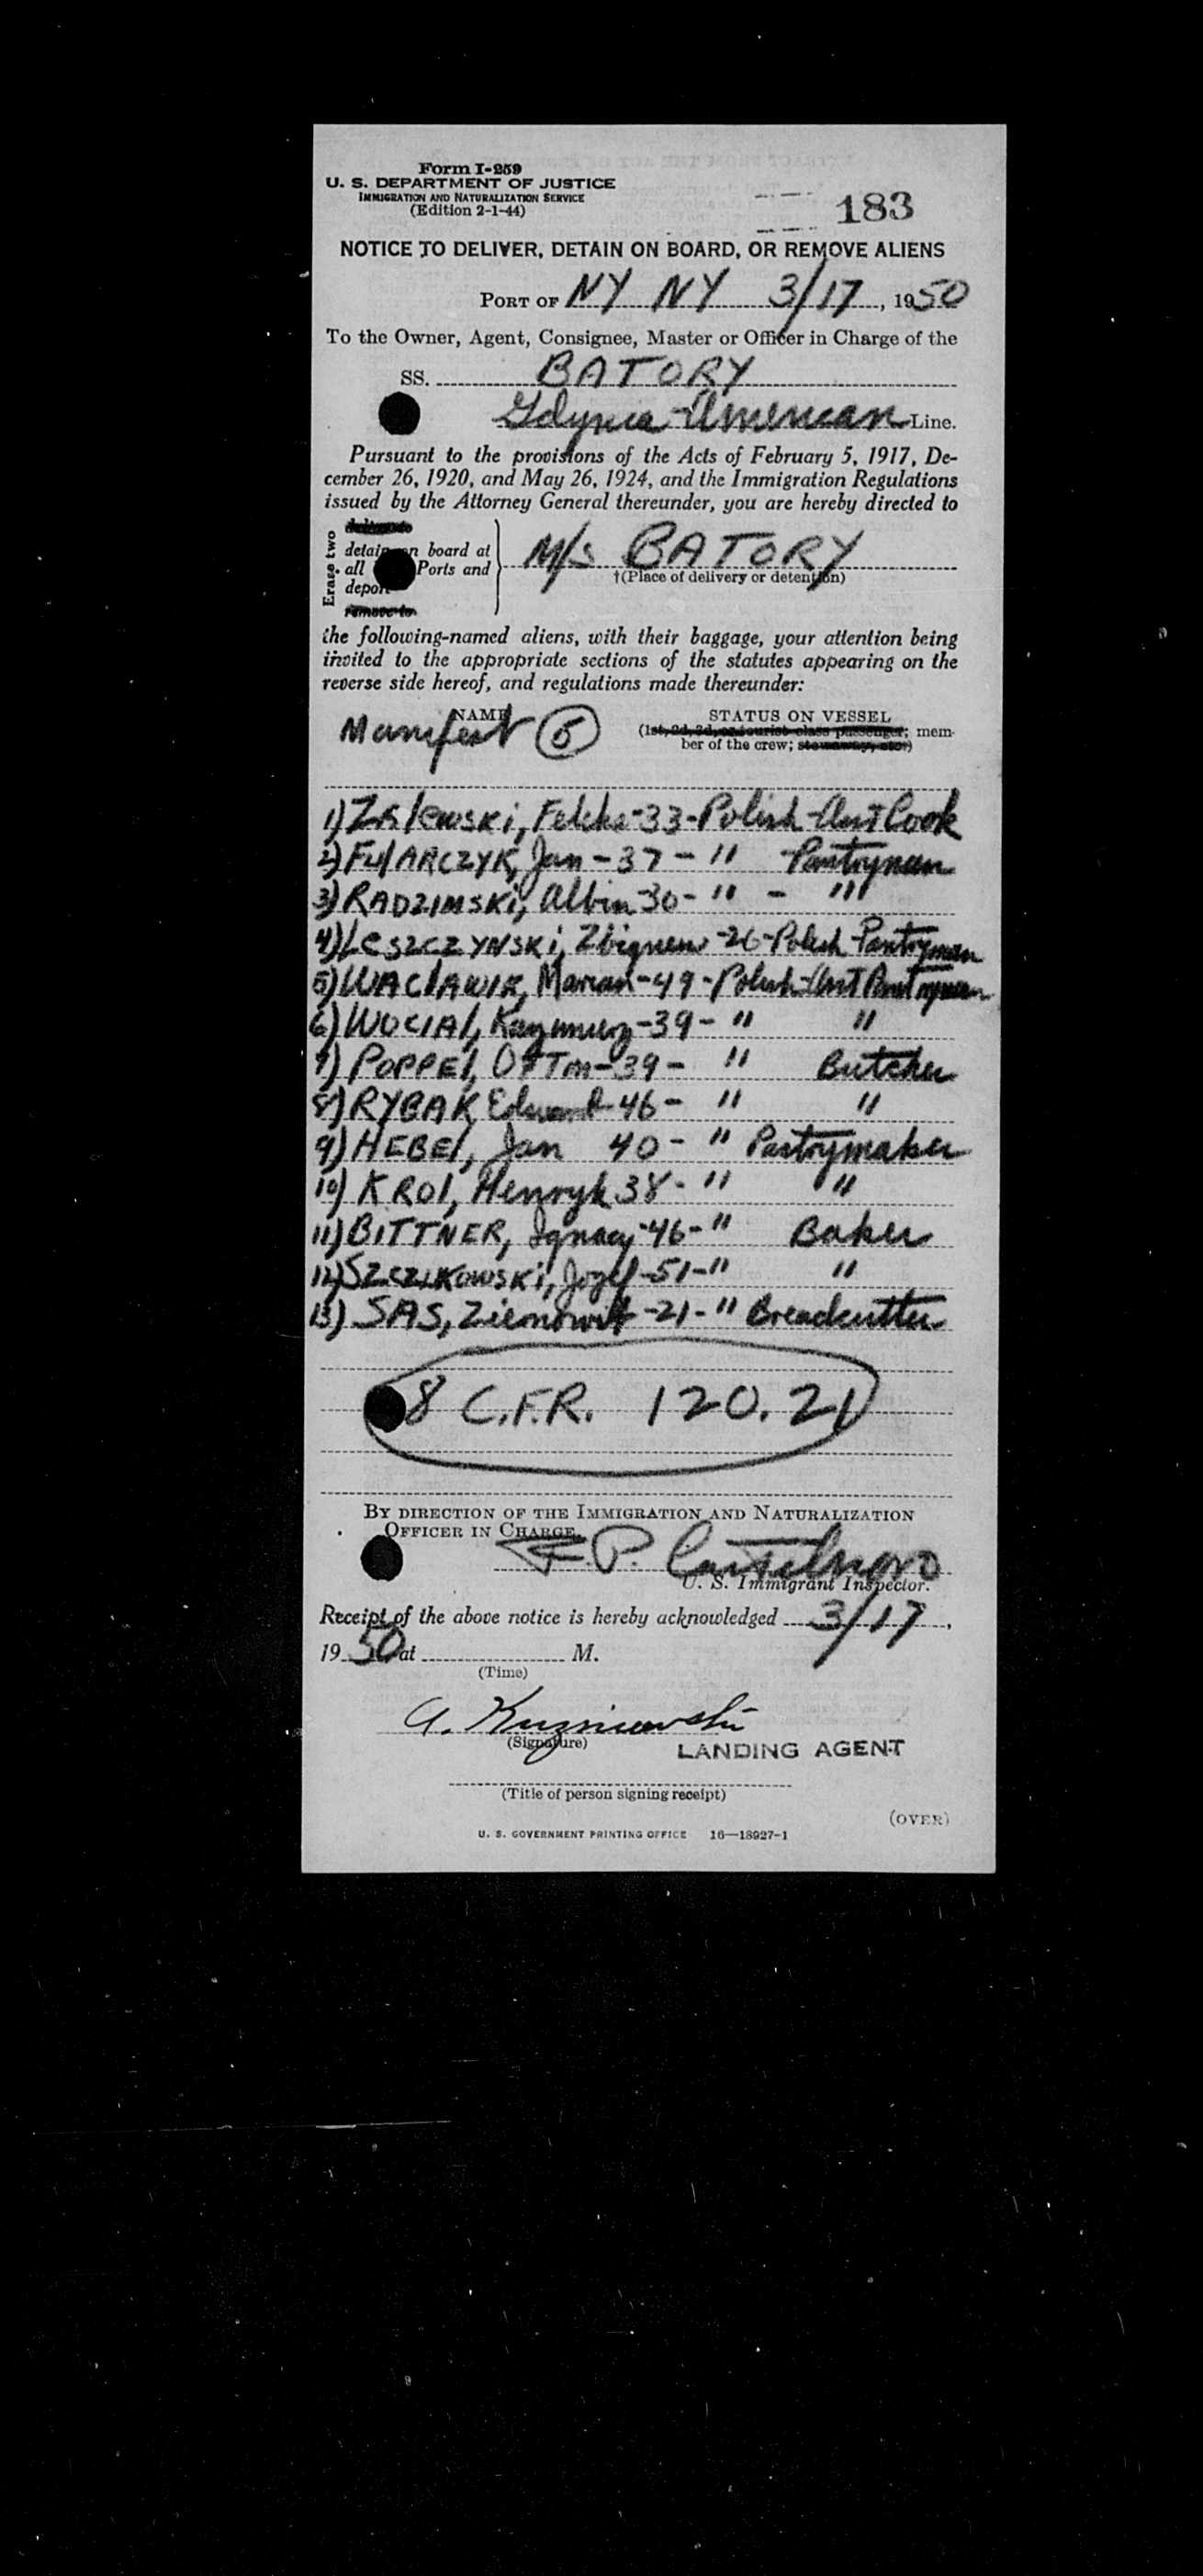 Form I-259
U. S. DEPARTMENT OF JUSTICE
IMMIGRATION AND NATURALIZATION SERVICE
(Edition 2-1-44)
183
NOTICE TO DELIVER, DETAIN ON BOARD, OR REMOVE ALIENS
PORT OF NY NY 3/17, 1950
To the Owner, Agent, Consignee, Master or Officer in Charge of the
SS. BATORY
Gdynia-American Line.
Pursuant to the provisions of the Acts of February 5, 1917, De-
cember 26, 1920, and May 26, 1924, and the Immigration Regulations
issued by the Attorney General thereunder, you are hereby directed to
Erase two
detain on board at
all Ports and
deport
remove to
M/S BATORY
†(Place of delivery or detention)
the following-named aliens, with their baggage, your attention being
invited to the appropriate sections of the statutes appearing on the
reverse side hereof, and regulations made thereunder:
NAME
Manifest 5
STATUS ON VESSEL
(1st, 2d, 3d, or tourist class passenger; mem-
ber of the crew; stowaway, etc.)
1) ZAlewski, Feliks-33-Polish-Asst Cook
2) FUlARCZYK, Jan-37-" Pantryman
3) RADZIMSKi, Albin 30-" - "
4) LeSZCZYNSKi, Zbigniew-26-Polish-Pantryman
5) WACłAWIK, Marian-49-Polish-Asst Pantryman
6) WOCIAl, Kazimierz-39-" "
7) POPPEl, -39- " Butcher
8) RYBAK, Edward-46- " "
9) HEBEl, Jan 40- " Pastrymaker
10) KROl, Henryk 38-" "
11) BITTNER, Ignacy-46-" Baker
12) SZCZUKOWSKi, Jozef-51-" "
13) SAS, Ziemowit-21-" Breadcutter
8 C.F.R. 120.21
BY DIRECTION OF THE IMMIGRATION AND NATURALIZATION
OFFICER IN CHARGE.
F. P. Castelnovo
U. S. Immigrant Inspector.
Receipt of the above notice is hereby acknowledged 3/17,
1950 at M.
(Time)
A. Kuzniewski
(Signature)
LANDING AGENT
(Title of person signing receipt)
(OVER)
U. S. GOVERNMENT PRINTING OFFICE 16—18927-1